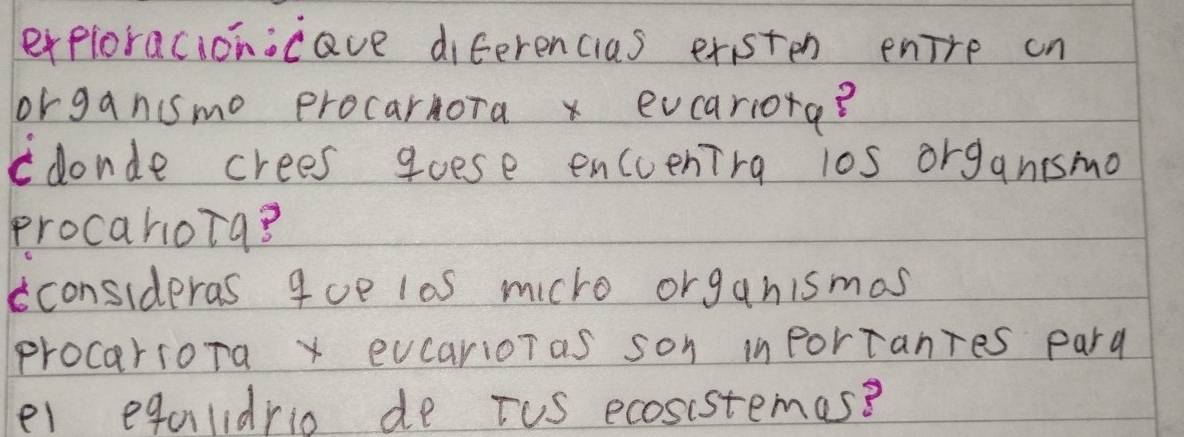 exploración: ¿Que diferencias existen entre un
organismo procariota y eucariota?
¿donde crees quese encuentra los organismo
procariota?
¿consideras que los micro organismos
procariota y eucariotas son inportantes para
el equilidrio de tus ecosistemas?